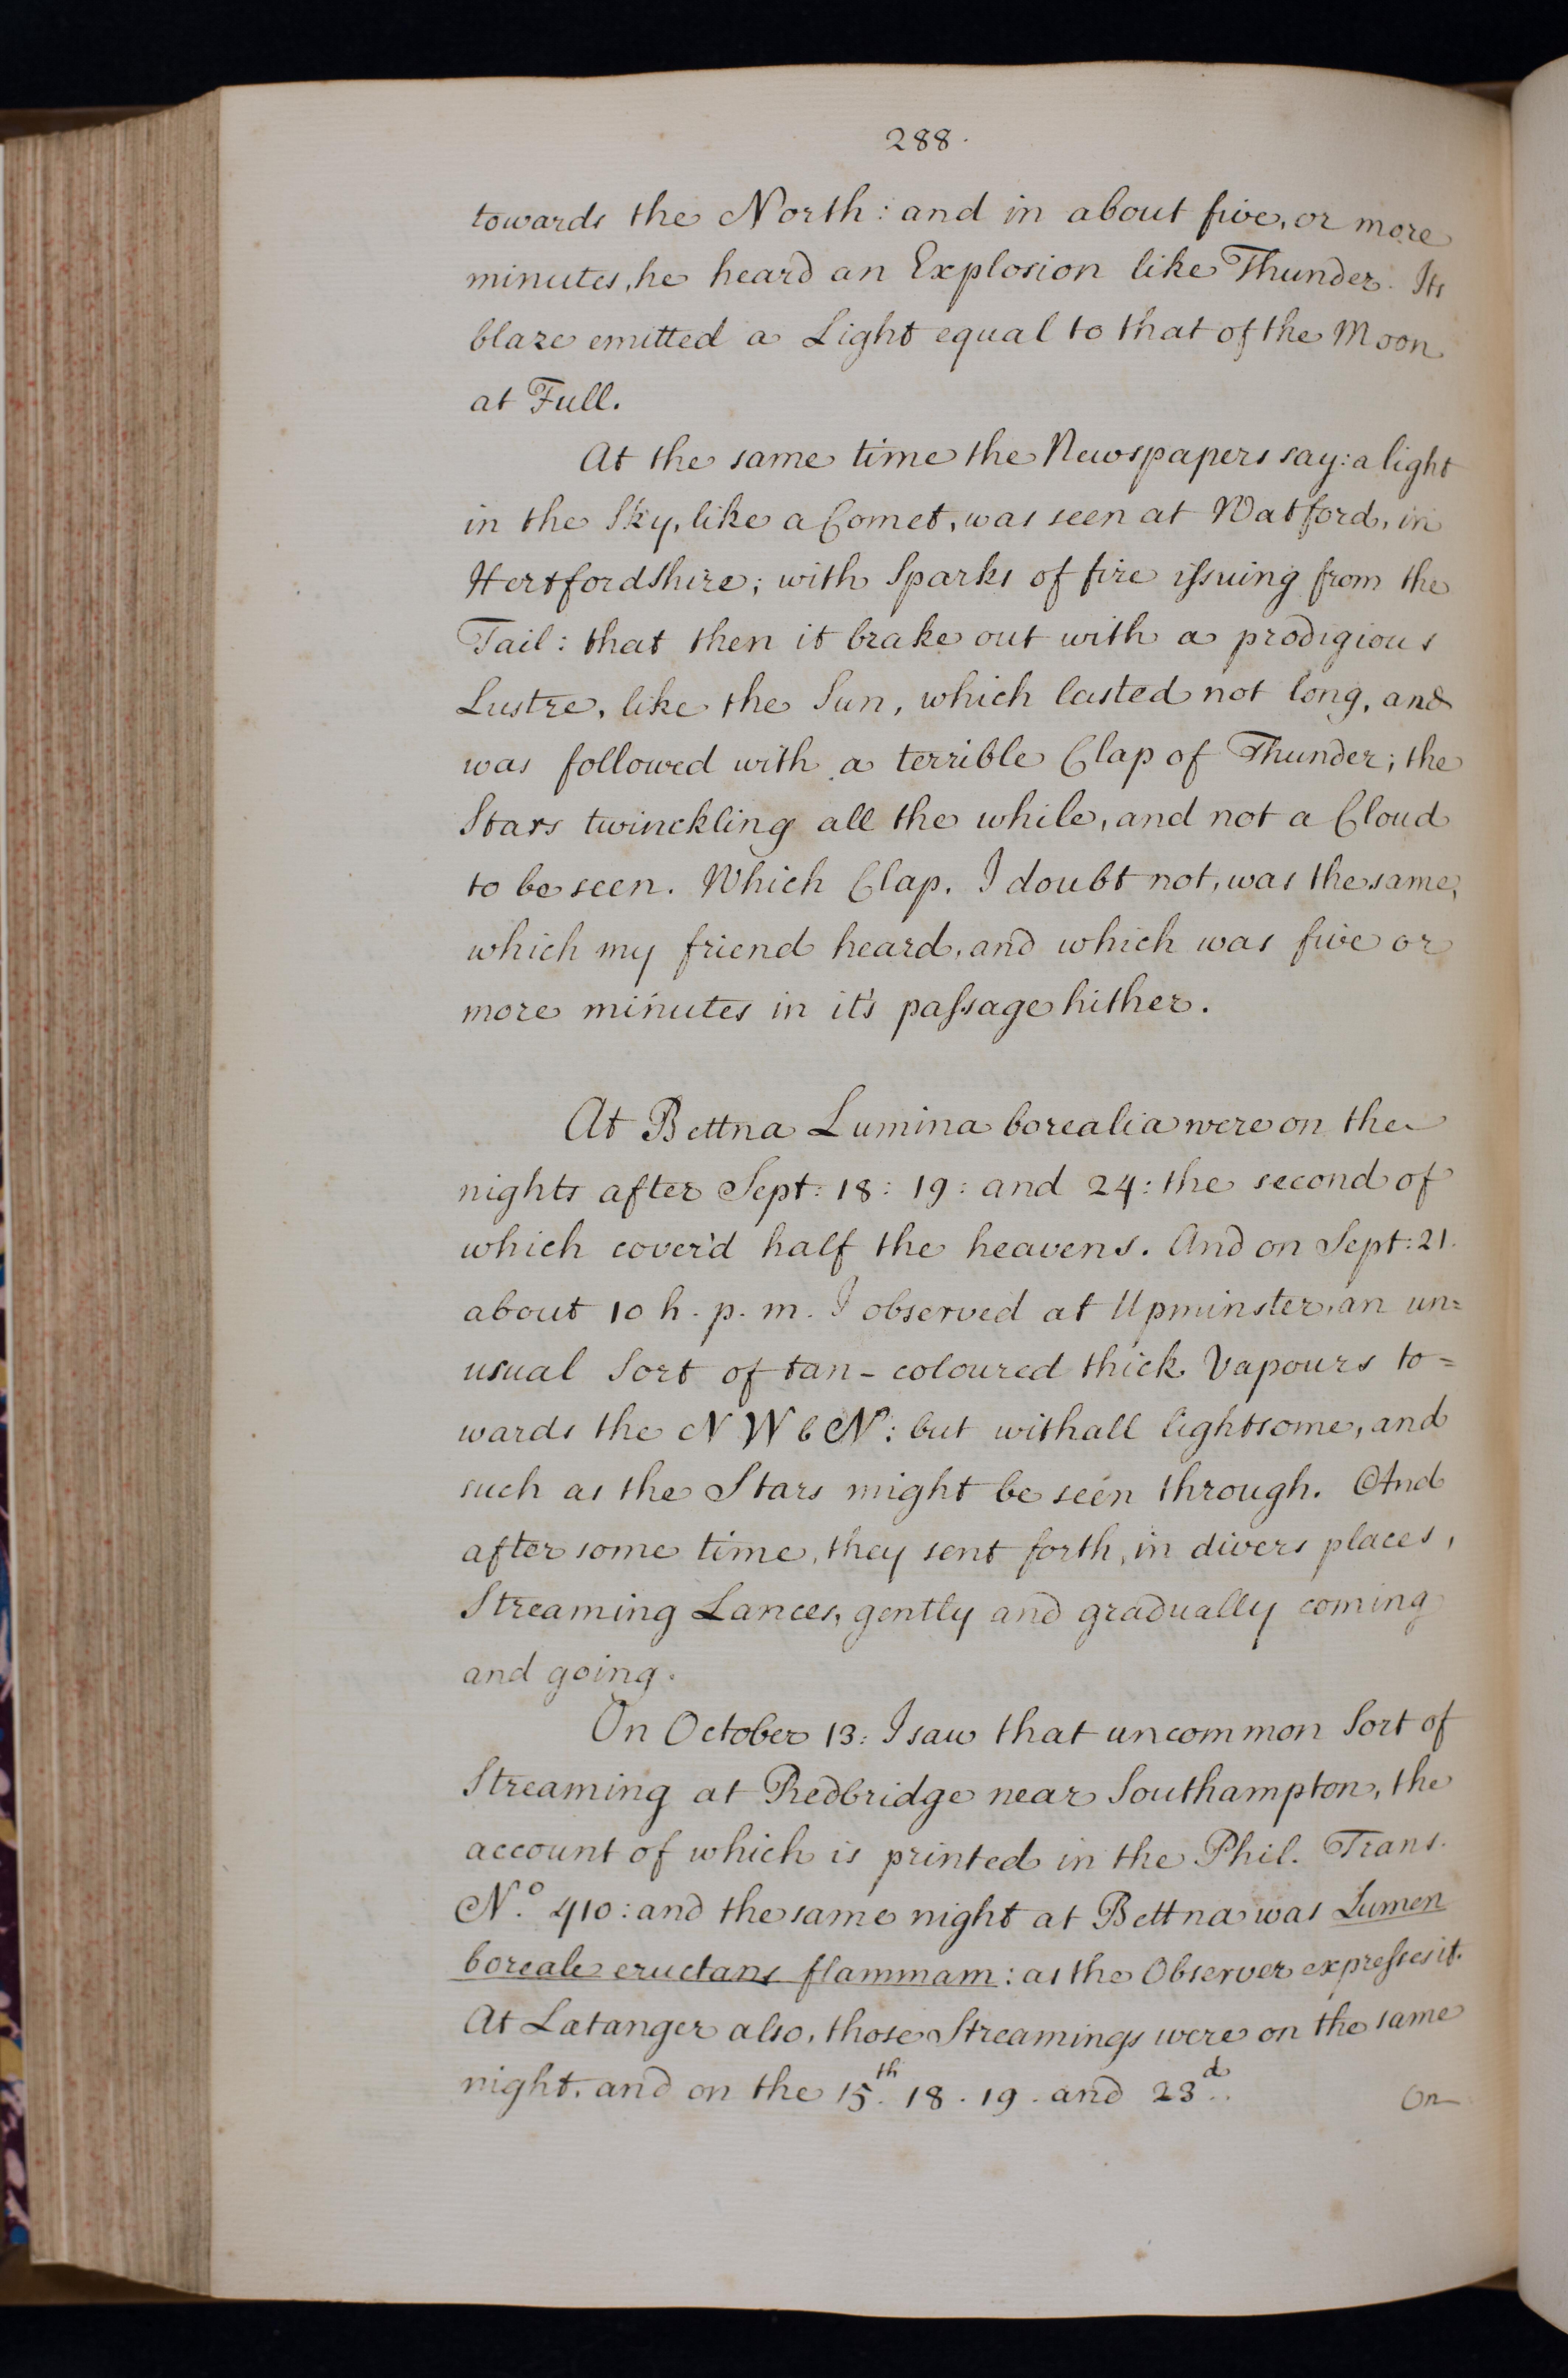 288.
towards the North: and in about five, or more
minutes, he heard an Explosion like Thunder. Its
blaze emitted a Light equal to that of the Moon
at Full.
At the same time the Newspapers say: a light
in the Sky, like a Comet, was seen at Watford, in
Hertfordshire; with Sparks of fire issuing from the
Tail: that then it brake out with a prodigious
Lustre, like the Sun, which lasted not long, and
was followed with a terrible Clap of Thunder; the
Stars twinckling all the while, and not a Cloud
to be seen. Which Clap, I doubt not, was the same,
which my friend heard, and which was five or
more minutes in it's passage hither.
At Bettna Lumina borealia were on the
nights after Sept: 18: 19: and 24: the second of
which cover'd half the heavens. And on Sept: 21.
about 10 h. p. m. I observed at Upminster, an un=
usual Sort of tan-coloured thick Vapours to=
wards the N W b N: but withall lightsome, and
such as the Stars might be seen through. And
after some time, they sent forth, in divers places,
Streaming Lances, gently and gradually coming
and going.
On October 13: I saw that uncommon Sort of
Streaming at Redbridge near Southampton, the
account of which is printed in the Phil. Trans.
N.º 410: and the same night at Bettna was Lumen
boreale eructans flammam: as the Observer expresses it.
At Latanger also, those Streamings were on the same
night, and on the 15th. 18. 19. and 23d.
On